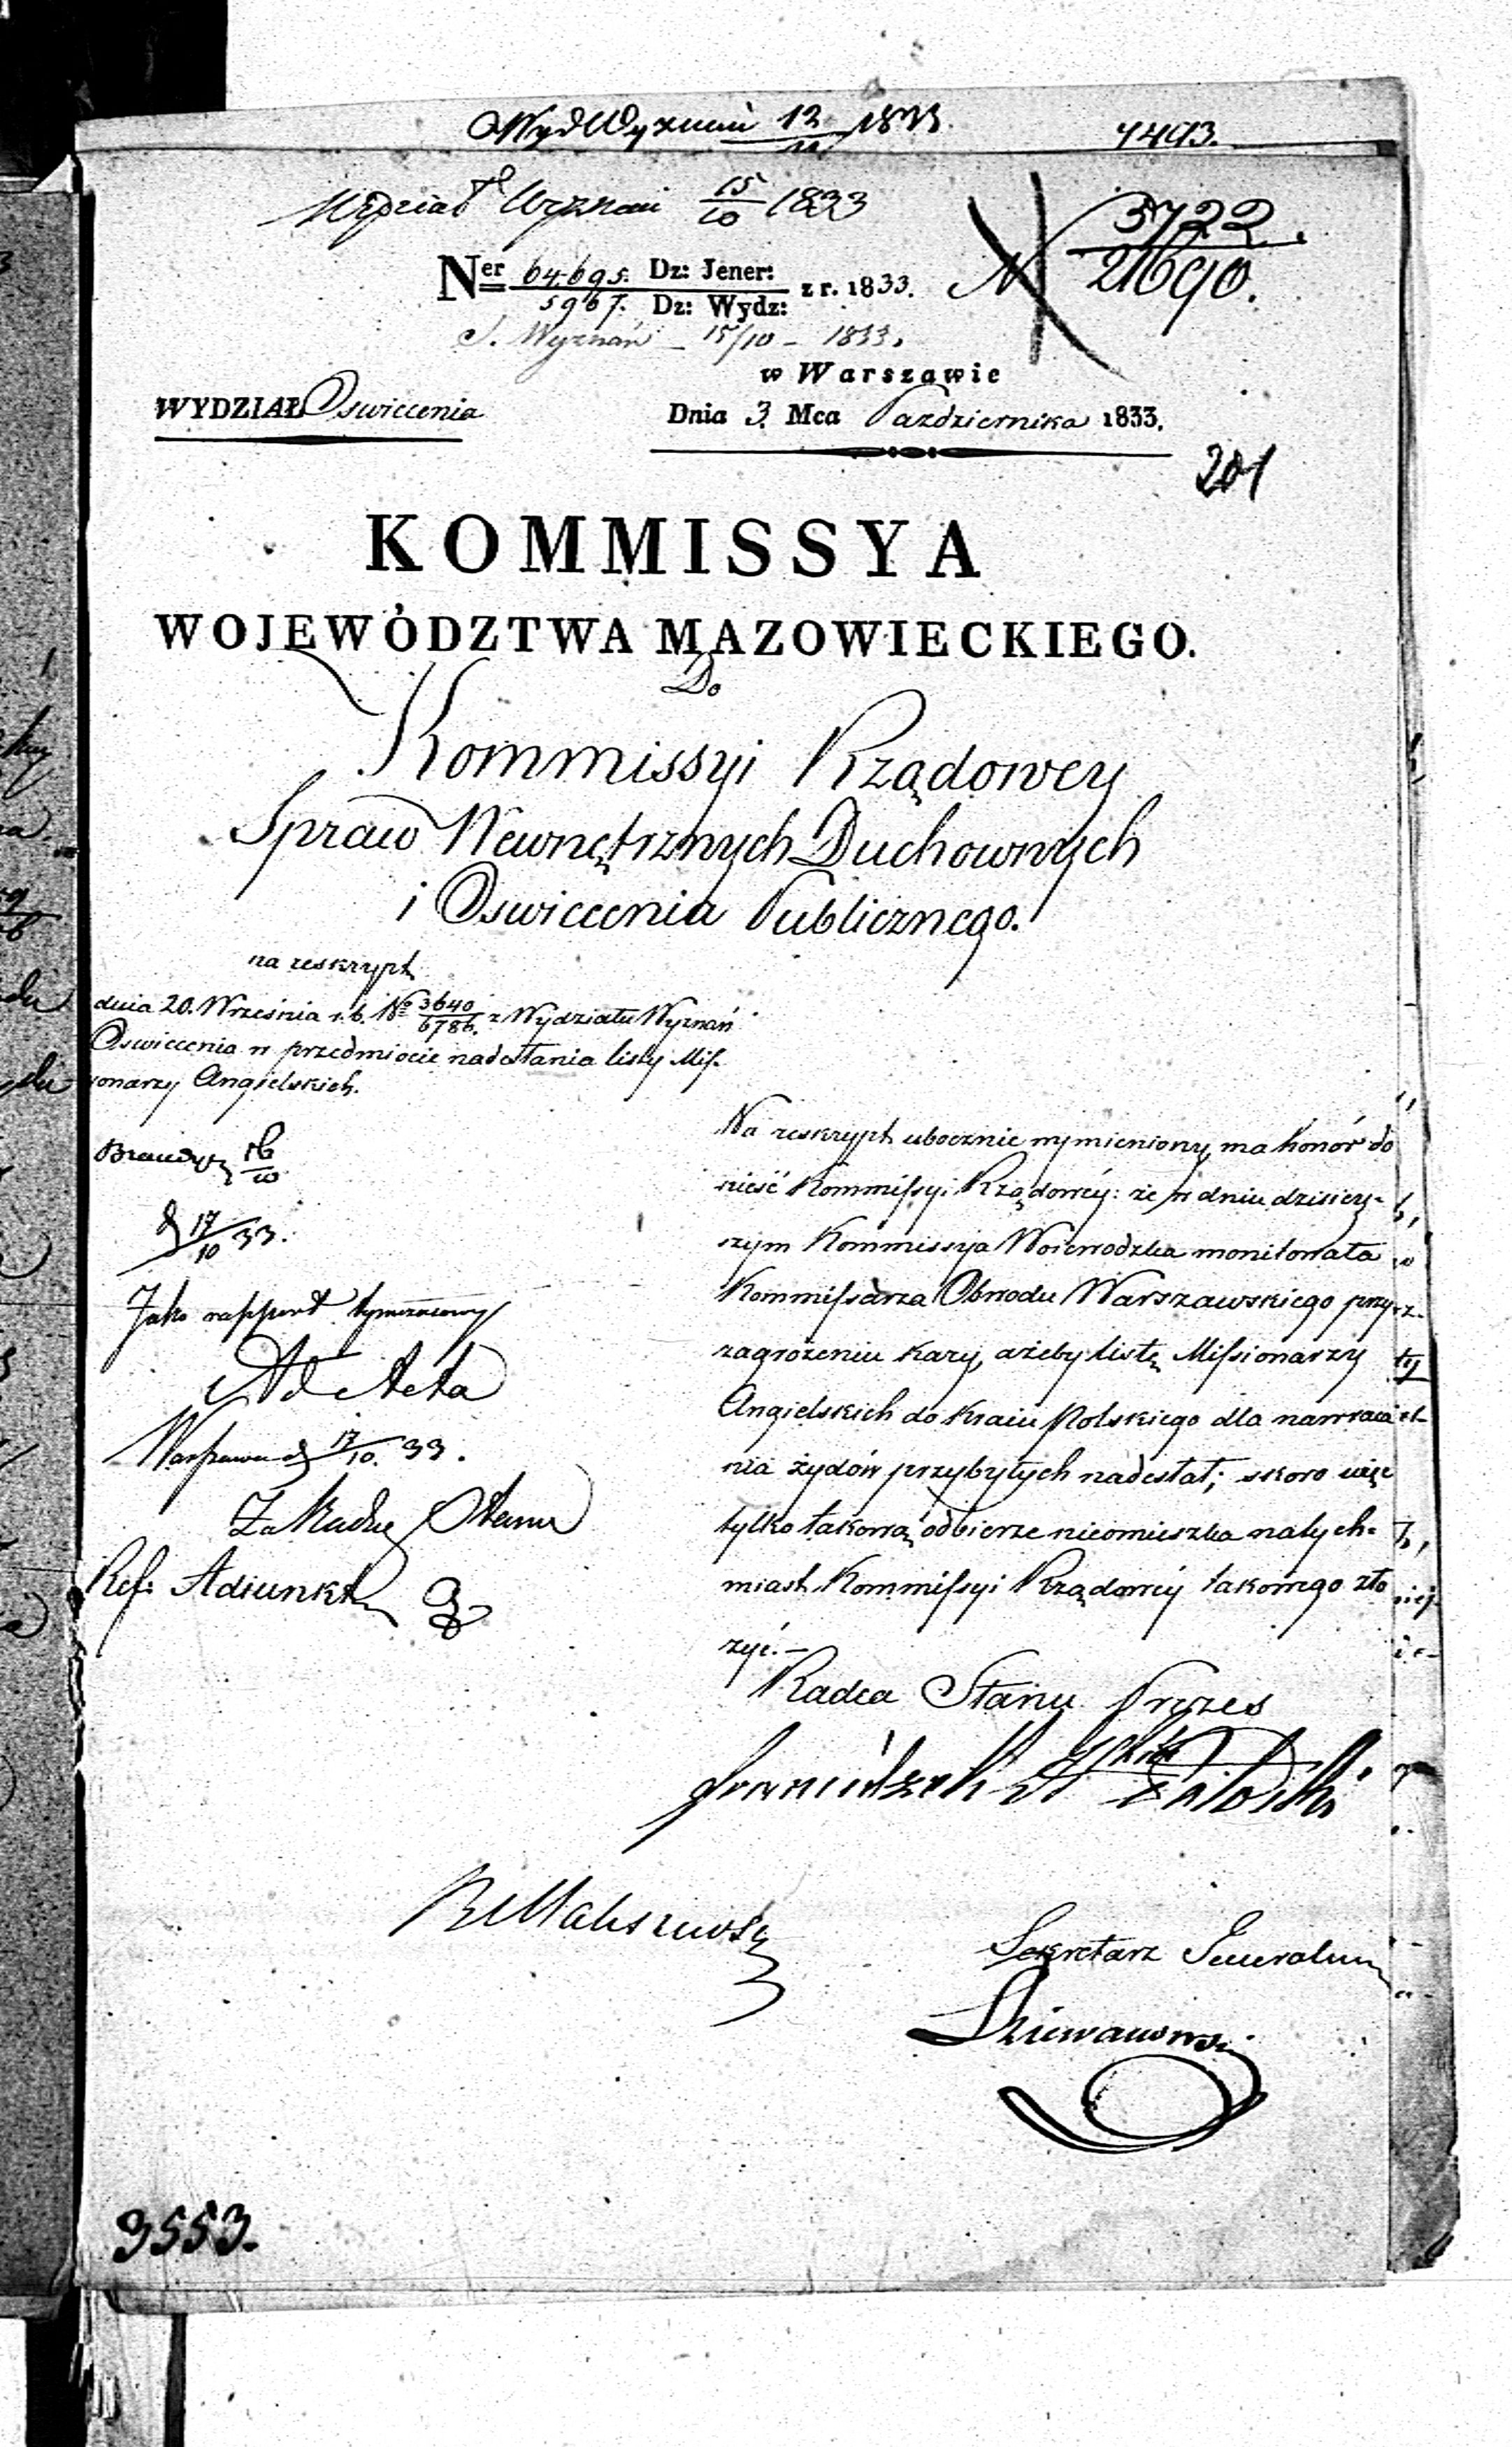 Wyd Wyznań 12/10 1833.
7493.
Wydział Wyznań 15/10 1833
N 3722/21690.
Ner 64695. Dz: Jener: / 5967. Dz: Wydz: z r. 1833.
S. Wyznań – 15/10 – 1833.
w Warszawie
WYDZIAŁ Oswiecenia
Dnia 3. Mca Pazdziernika 1833.
201
KOMMISSYA
WOJEWÓDZTWA MAZOWIECKIEGO.
Do
Kommissyi Rządowey
Spraw Wewnętrznych Duchownych
i Oswiecenia Publicznego.
na reskrypt
dnia 20. Września r. b. No 3640/6786. z Wydziału Wyznań
Oswiecenia w przedmiocie nadesłania listy Mis-
onarzy Angielskich.
16/10
17/10 33.
Jako rapport tymczasowy
Ad Acta
Warszawa d 17/10. 33.
Za Radcę Stanu
Ref: Adiunkt
Na reskrypt ubocznie wymieniony, ma honor do
nieść Kommissyi Rządowéy: że w dniu dzisiey-
szym Kommissya Woiewodzka monitowała
Kommissarza Obwodu Warszawskiego przy
zagrożeniu kary, ażeby listę Missionarzy
Angielskich do Kraiu Polskiego dla nawraca
nia żydów przybyłych nadesłał; skoro więc
tylko takową odbierze nieomieszka natych-
miast Kommissyi Rządowéy takowego zło
żyć.–
Radca Stanu Prezes
Sekretarz Generalny
Dziewanowski
3553.